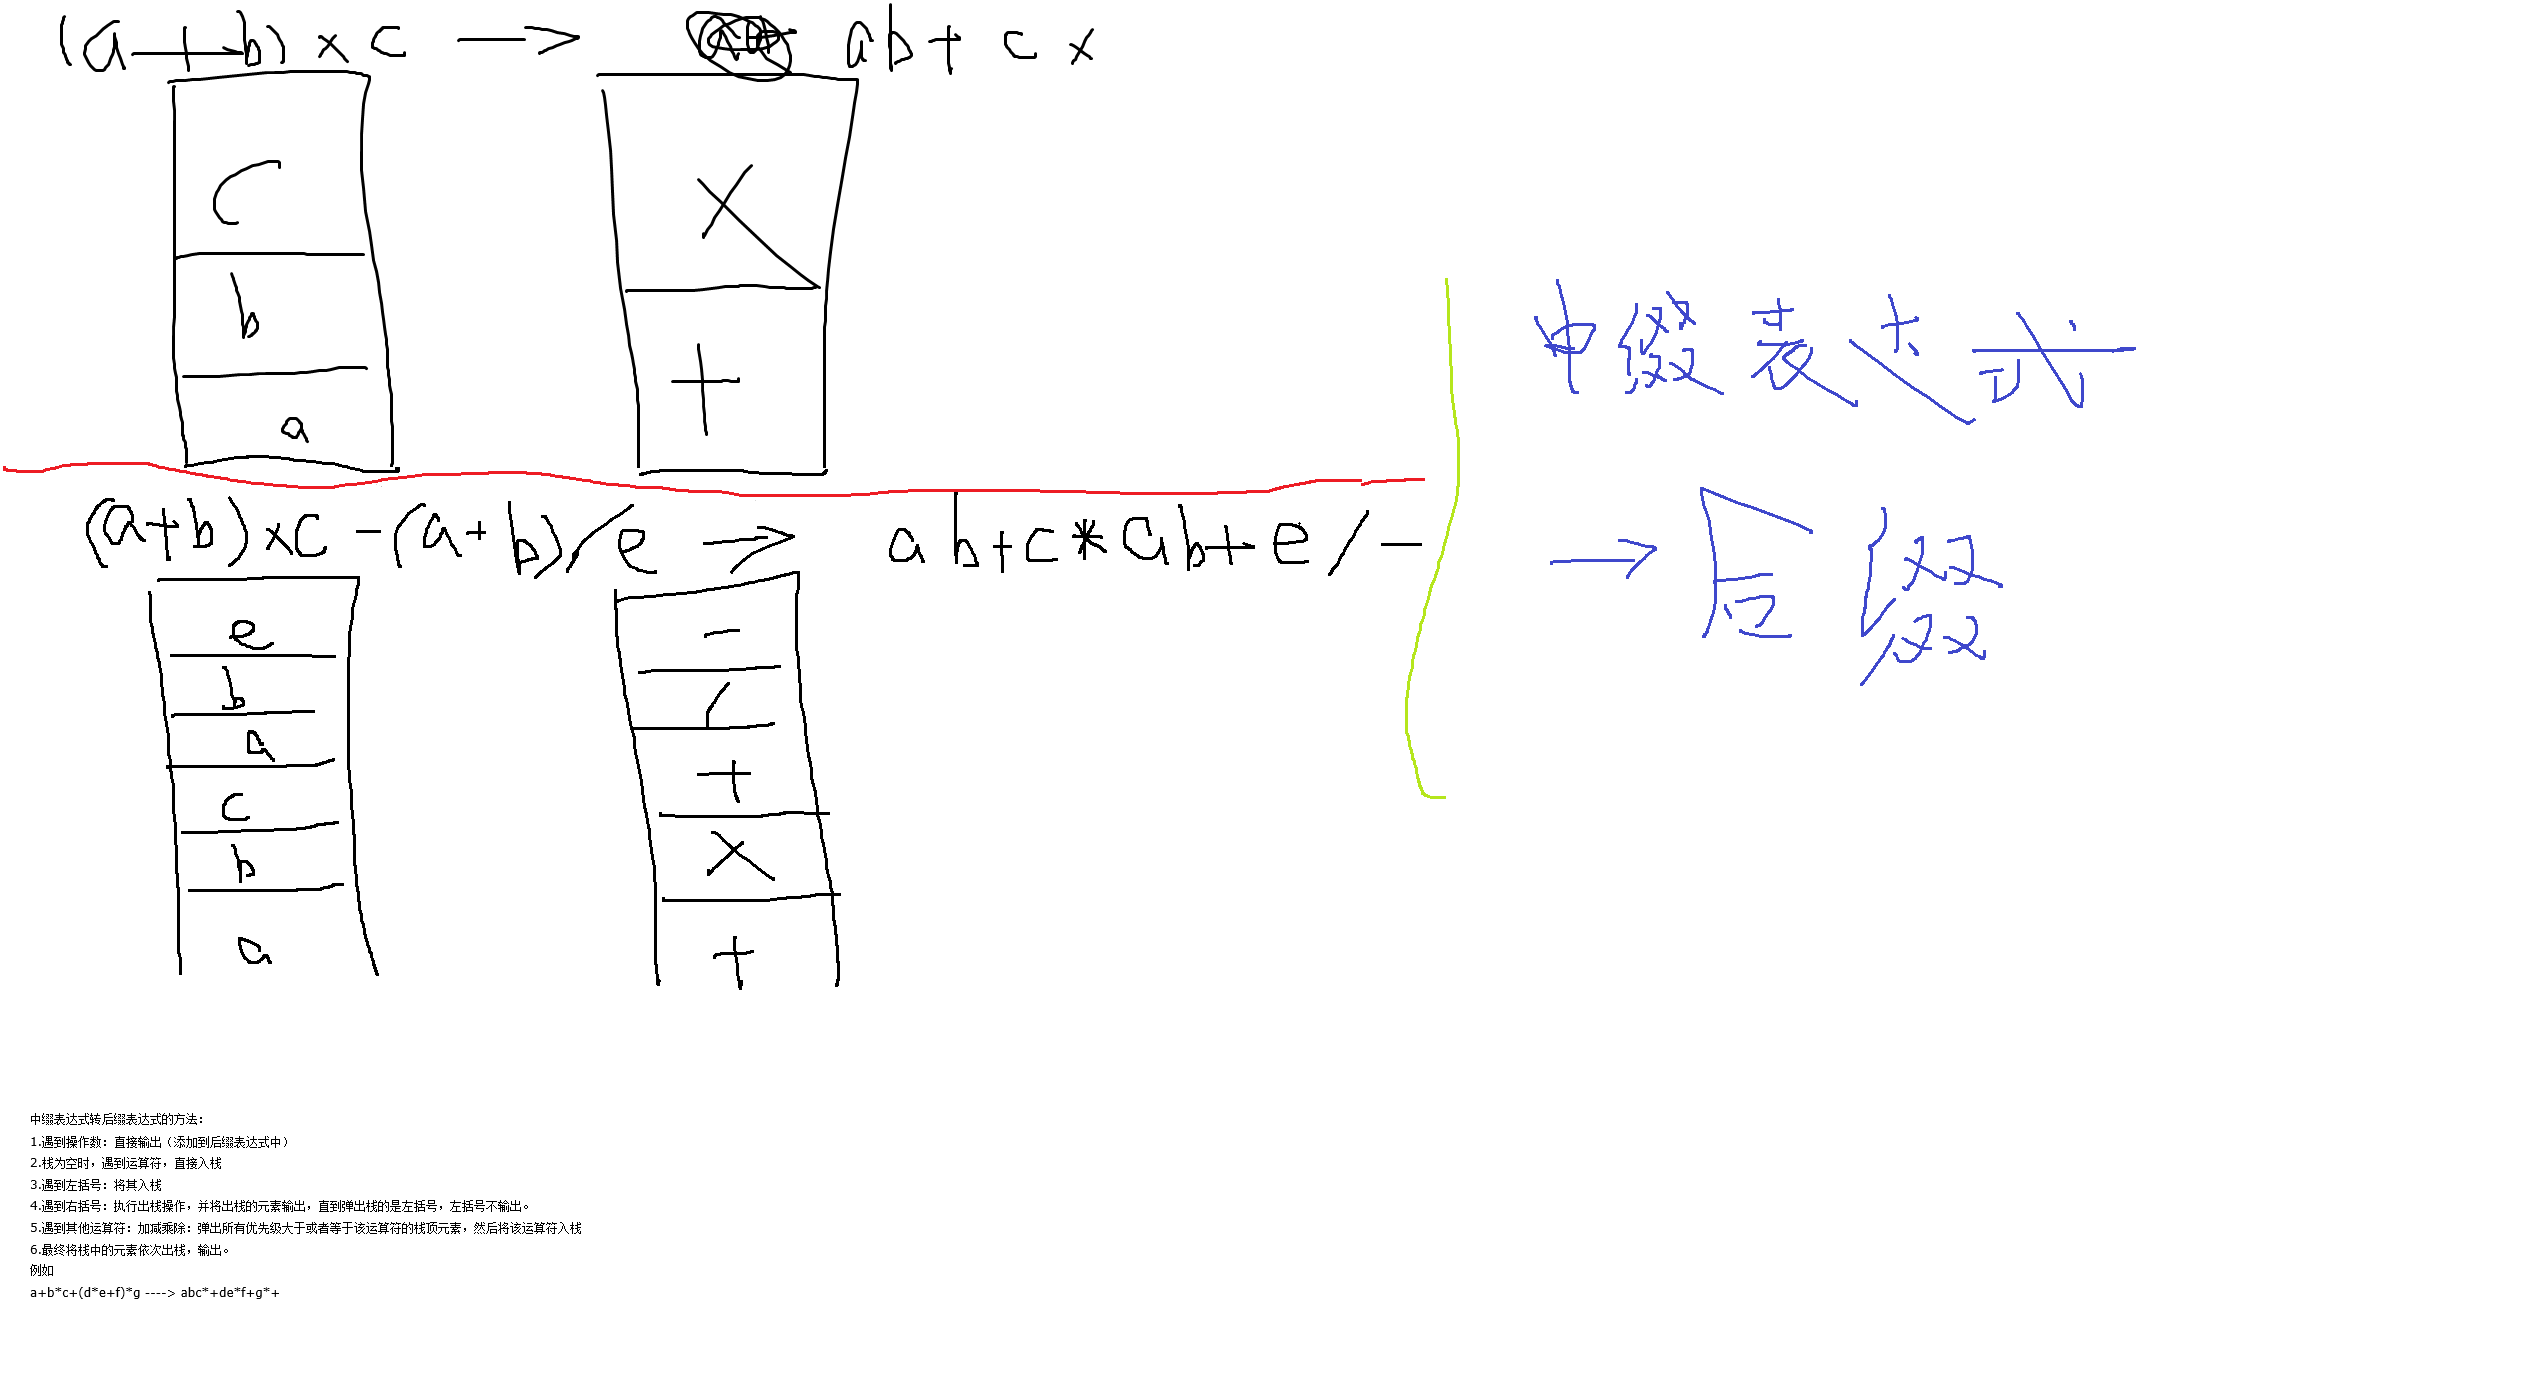 (a+b)×c → ab+c×
c
b
a
×
+
(a+b)×c-(a+b)/e → ab+c*ab+e/-
e
b
a
c
b
a
-
/
+
×
+
中缀表达式
→后缀
中缀表达式转后缀表达式的方法：
1.遇到操作数：直接输出（添加到后缀表达式中）
2.栈为空时，遇到运算符，直接入栈
3.遇到左括号：将其入栈
4.遇到右括号：执行出栈操作，并将出栈的元素输出，直到弹出栈的是左括号，左括号不输出。
5.遇到其他运算符：加减乘除：弹出所有优先级大于或者等于该运算符的栈顶元素，然后将该运算符入栈
6.最终将栈中的元素依次出栈，输出。
例如
a+b*c+(d*e+f)*g ----> abc*+de*f+g*+